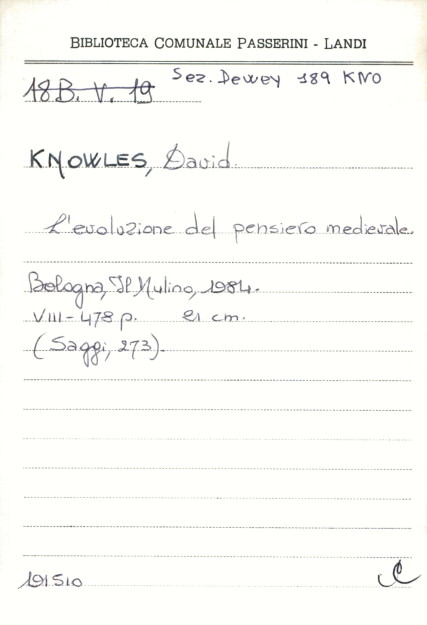 BIBLIOTECA COMUNALE PASSERINI - LANDI
Sez. Dewey 189 KNO
18 B. V. 19
KNOWLES, David
L'evoluzione del pensiero medievale.
Bologna, Il Mulino, 1984.
VIII-478 p. 21 cm.
(Saggi, 273).
191510